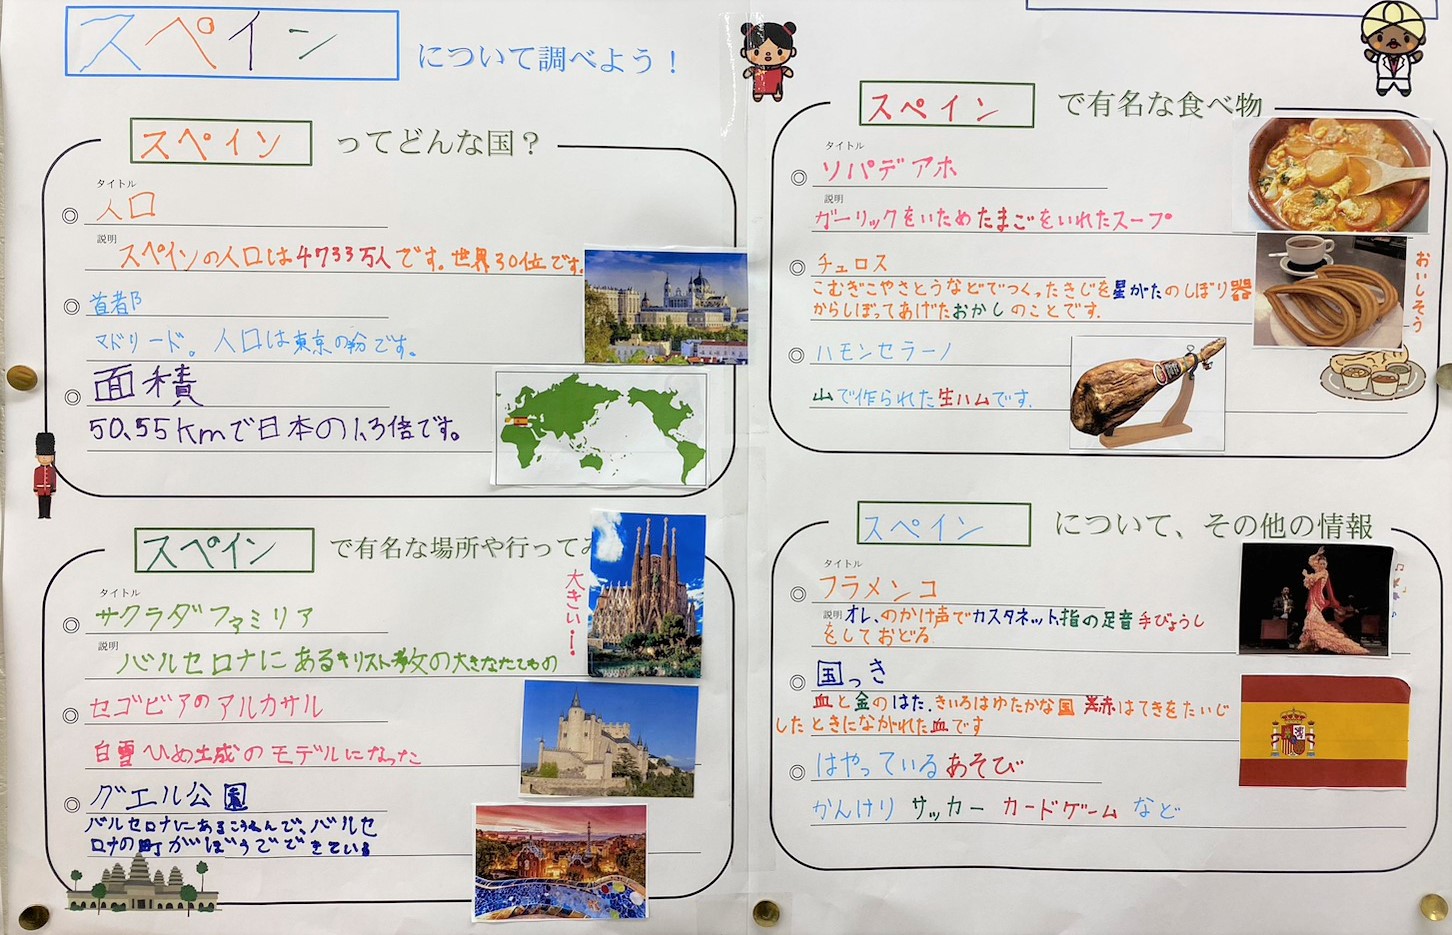 スペイン について調べよう！
スペイン ってどんな国？
タイトル
◎ 人口
説明
スペインの人口は4733万人です。世界30位です。
◎ 首都
マドリード。人口は東京の　です。
◎ 面積
50.55Kmで日本の1.3倍です。
スペイン で有名な場所や行ってみ
タイトル
◎ サクラダファミリア
説明
バルセロナにあるキリスト教の大きなたてもの
大きい！
◎ セゴビアのアルカサル
白雪ひめ城のモデルになった
◎ グエル公園
バルセロナにあるこうえんで、バルセ
ロナの町がぼうでできている
スペイン で有名な食べ物
タイトル
◎ ソパデアホ
説明
ガーリックをいためたまごをいれたスープ
◎ チュロス
こむぎこやさとうなどでつくったきじを星がたのしぼり器
からしぼってあげたおかしのことです。
おいしそう
◎ ハモンセラーノ
山で作られた生ハムです。
スペイン について、その他の情報
タイトル
◎ フラメンコ
説明
オレ、のかけ声でカスタネット、指の足音手びょうし
をしておどる
◎ 国っき
血と金のはた、きいろはゆたかな国 赤はてきをたいじ
したときにながれた血です
◎ はやっているあそび
かんけり サッカー カードゲーム など